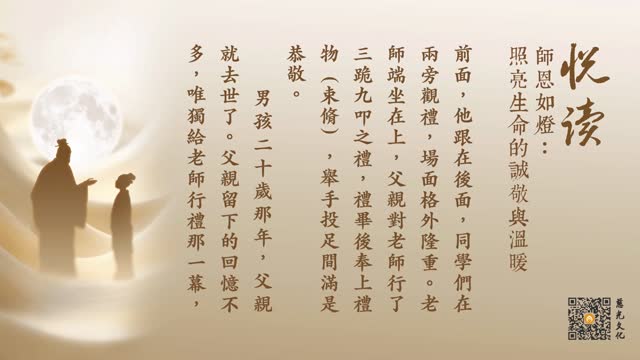 悦读
師恩如燈：
照亮生命的誠敬與溫暖
前面，他跟在後面，同學們在
兩旁觀禮，場面格外隆重。老
師端坐在上，父親對老師行了
三跪九叩之禮，禮畢後奉上禮
物（束脩），舉手投足間滿是
恭敬。
男孩二十歲那年，父親
就去世了。父親留下的回憶不
多，唯獨給老師行禮那一幕，
慧光文化